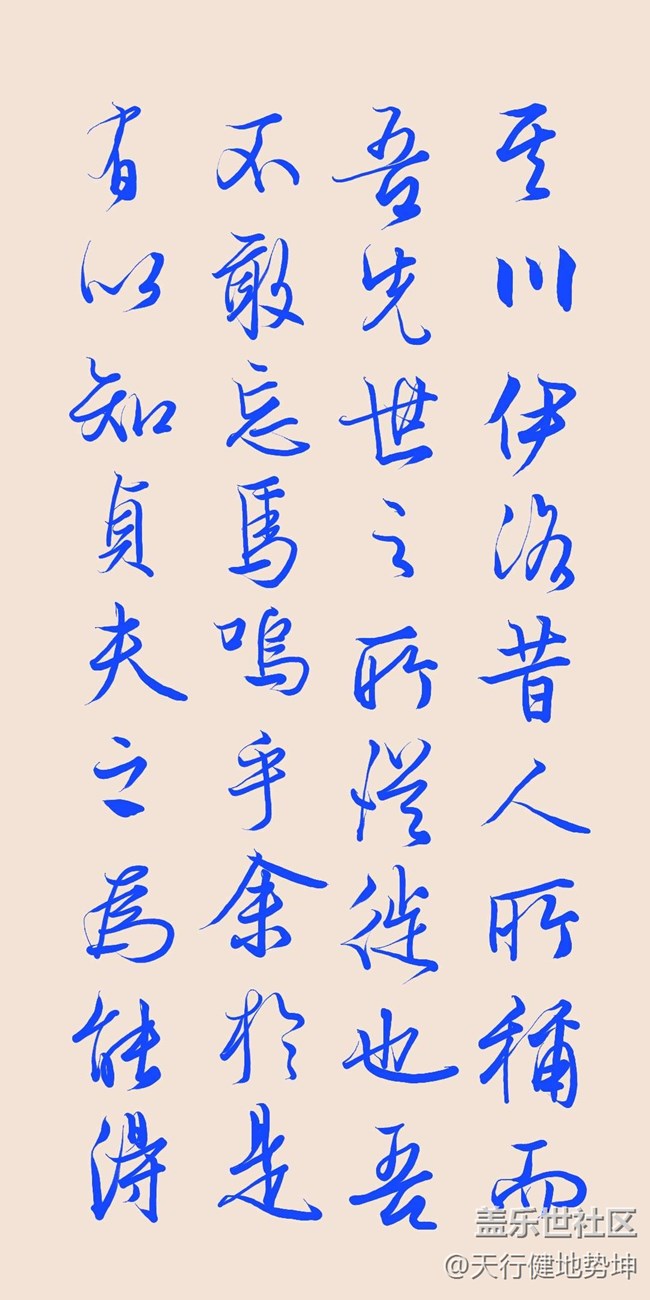 其川伊洛昔人所稱而
吾先世之所從徙也吾
不敢忘焉嗚乎余於是
有以知貞夫之為能得
盖乐世社区
@天行健地势坤